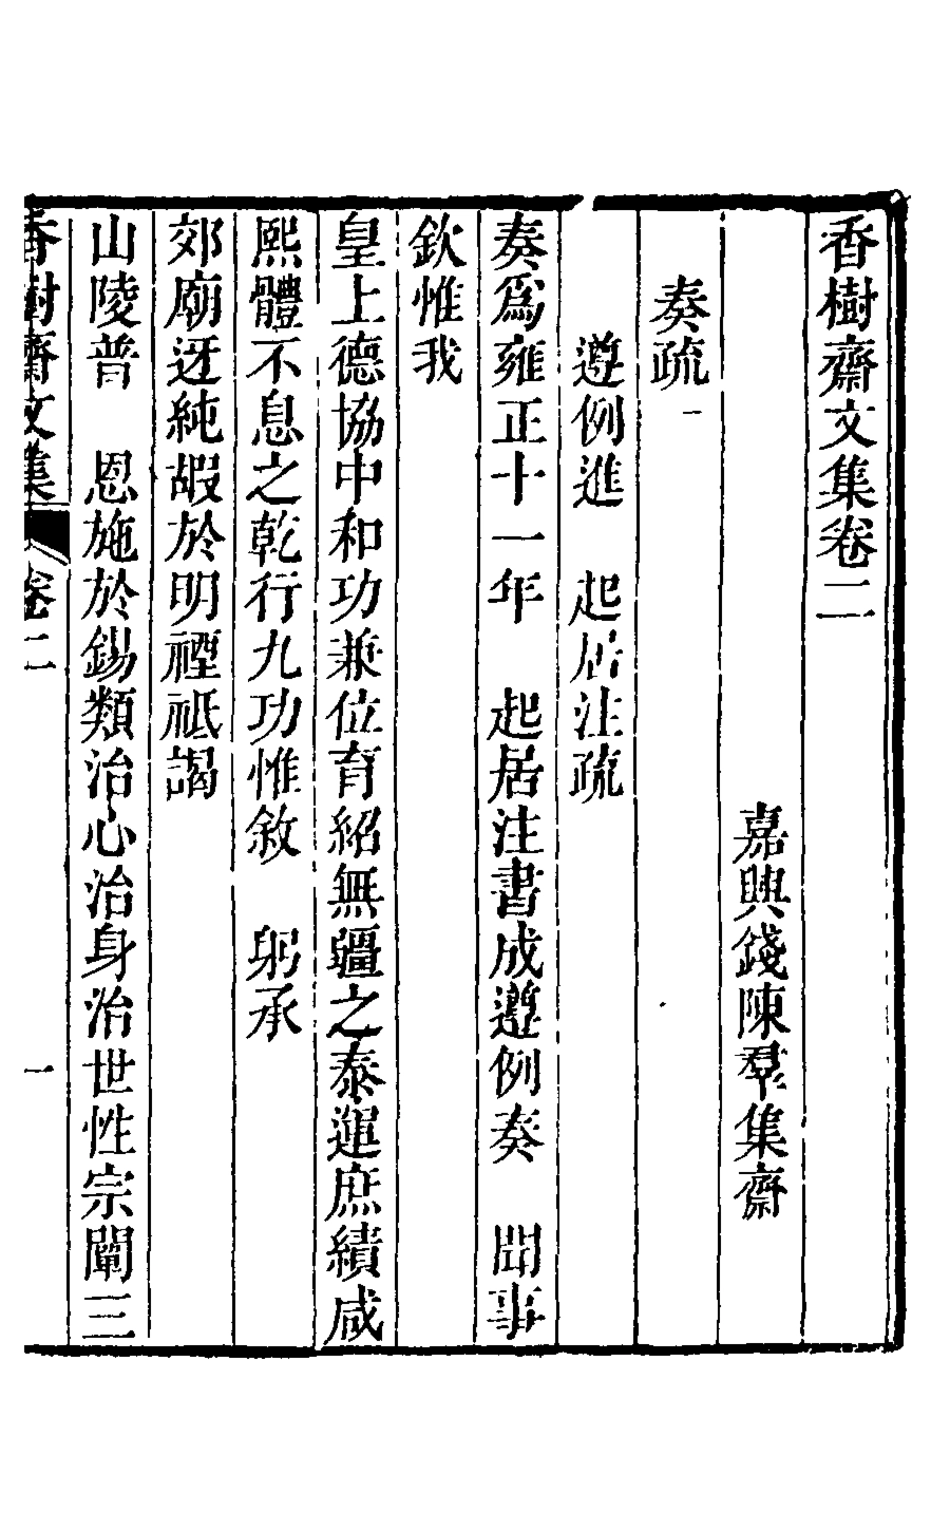 香樹齋文集卷二
嘉興錢陳羣集齋
奏疏一
遵例進　起居注疏
奏爲雍正十一年　起居注書成遵例奏　聞事
欽惟我
皇上德協中和功兼位育紹無疆之泰運庶績咸
熙體不息之乾行九功惟敘　躬承
郊廟迓純嘏於明禋祗謁
山陵普　恩施於錫類治心治身治世性宗闡三
香樹齋文集　卷二　一